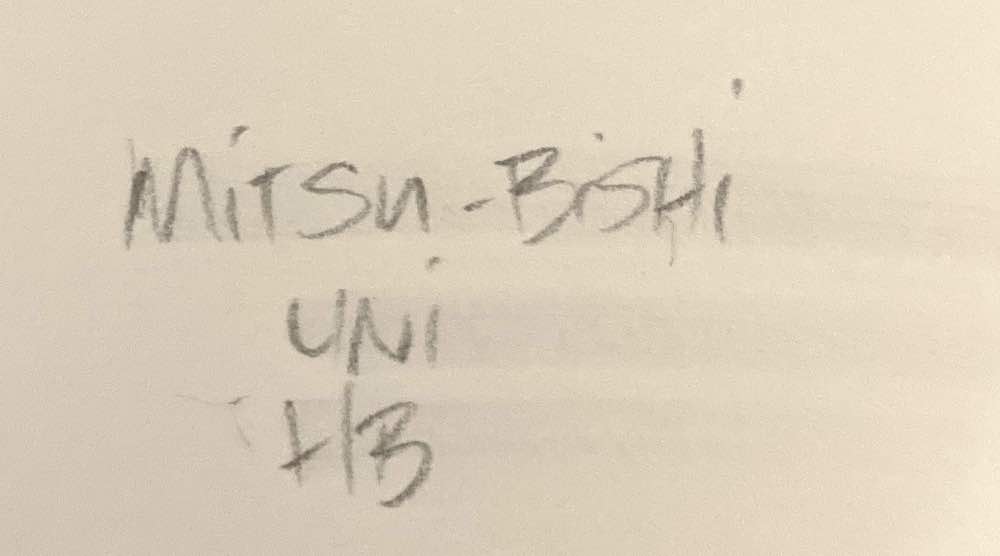 Mitsu-Bishi
UNi
HB